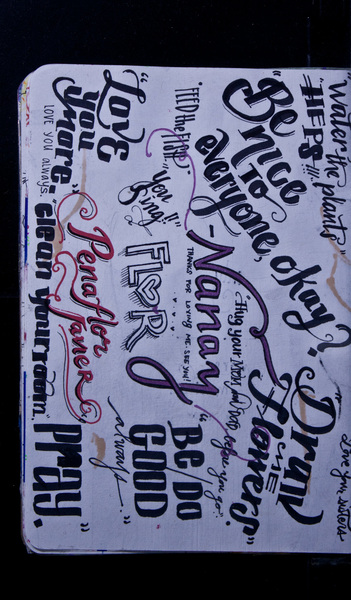 "Water the plants"
HEPS!!!
"Be
nice
to
everyone,
okay?
"Draw
me
flowers"
Love your sisters
"FEED the
you
Sing!!
- Nanay
THANKS FOR LOVING ME. SEE YOU!
"Hug your Mom and Dad before you go".
FLOR
"BE/DO
GOOD
always."
"Love
you
more."
LOVE YOU ALWAYS.
Penaflor
Janer
"clean your room."
pray."